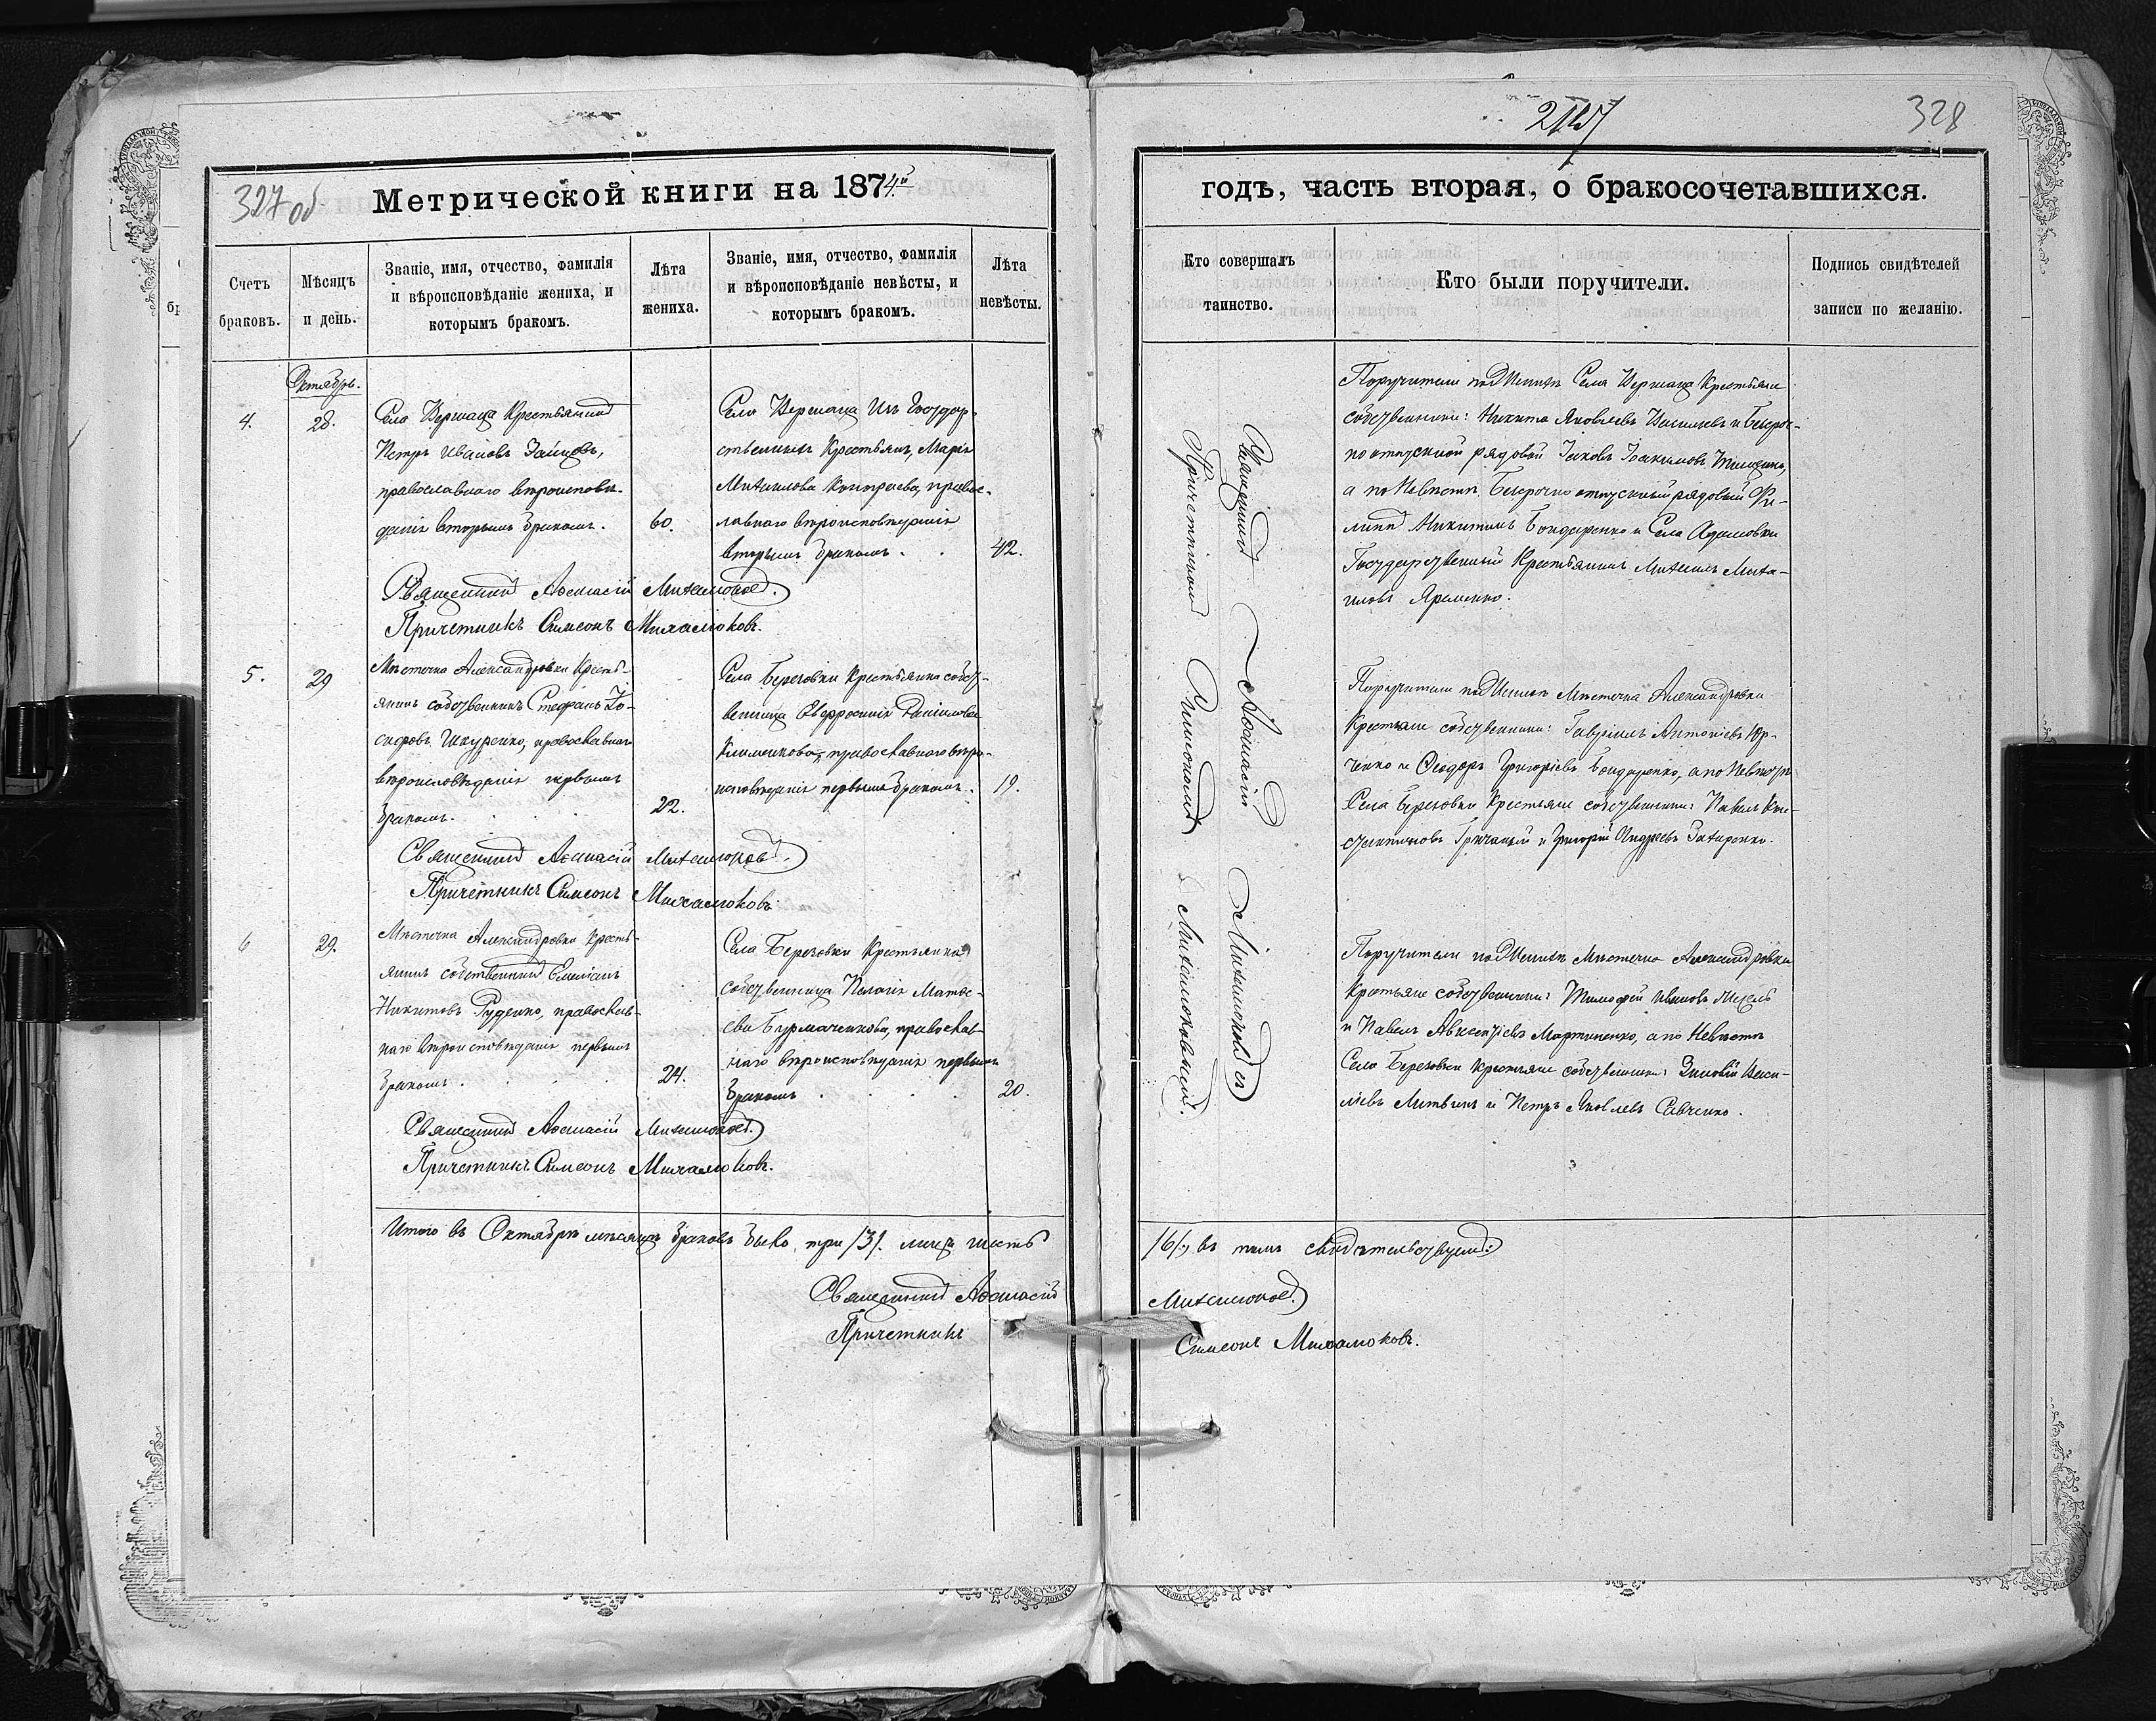 327 об
Метрической книги на 1874й
Счетъ браковъ.
Мѣсяцъ и день.
Званіе, имя, отчество, фамилія
и вѣроисповѣданіе жениха, и
которымъ бракомъ.
Лѣта
жениха.
Званіе, имя, отчество, фамилія
и вѣроисповѣданіе невѣсты, и
которымъ бракомъ.
Лѣта
невѣсты.
Октябрь.
4.
28.
Села Вершаца Крестьянинъ
Петръ Ивановъ Зайцовъ,
православнаго вѣроисповѣ-
данія вторымъ бракомъ.
60.
Села Вершаца Изъ Государ-
ственныхъ Крестьянъ, Марія
Михаилова православ-
лавнаго вѣроисповѣданія
вторымъ бракомъ.
42.
Священникъ Аѳанасій Михалюковъ.
Причетникъ Симеонъ Михалюковъ.
5.
29
Мѣстечка Александровки Кресть-
янинъ собственникъ Стефанъ Ѳо-
доровъ Шкуренко, православнаго
вѣроисповѣданія первымъ
бракомъ.
22.
Села Березовки Крестьянка собст-
венница Евфросинія Даніилова
Клименкова, православнаго вѣро-
исповѣданія первымъ бракомъ.
19.
Священникъ Аѳанасій Михалюковъ.
Причетникъ Симеонъ Михалюковъ
6
29.
Мѣстечка Александровки Кресть-
янинъ собственникъ Емиліанъ
Никитовъ Руденко, православ-
наго вѣроисповѣданія первымъ
бракомъ.
24.
Села Березовки Крестьянка
собственница Пелагія Матѳе-
ева Бурмаченкова, православ-
наго вѣроисповѣданія первымъ
бракомъ
20.
Священникъ Аѳанасій Михалюковъ.
Причетникъ Симеонъ Михалюковъ.
Итого въ Октябрѣ мѣсяцѣ браковъ было три /3/. лицъ шесть
Священникъ Аѳанасій
Причетникъ
328
годъ, часть вторая, о бракосочетавшихся.
Кто совершалъ
таинство.
Кто были поручители.
Подпись свидѣтелей
записи по желанію.
Священникъ Аѳанасій Михалюковъ съ
Причетникомъ Симеономъ Михалюковымъ.
Поручители по Женихѣ Села Вершаца Крестьяне
собственники: Никита Яковлевъ Васильевъ и Безсроч-
но отпускной рядовой Іаковъ Іоакимовъ Тищенко,
а по Невѣстѣ Безсрочно отпускный рядовый Фи-
липпъ Никитинъ Бондаренко и Села Адамовки
Государственный Крестьянинъ Михаилъ Миха-
иловъ Яременко.
Поручители по Женихѣ Мѣстечка Александровки
Крестьяне собственники: Гавріилъ Антоніевъ Юр-
ченко и Ѳеодоръ Григоріевъ Бондаренко, а по Невѣстѣ
Села Березовки Крестьяне собственники: Павелъ Кон-
стантиновъ Гричаный и Григорій Андреевъ Захаренко.
Поручители по Женихѣ Мѣстечка Александровки
Крестьяне собственники: Тимофей Ивановъ
и Павелъ Авксентіевъ Мартиненко, а по Невѣстѣ
Села Березовки Крестьяне собственники: Зиновій Васи-
ліевъ Литвинъ и Петръ Яковлевъ Савченко.
/6/, въ томъ свидѣтельствуемъ:
Михалюковъ.
Симеонъ Михалюковъ.